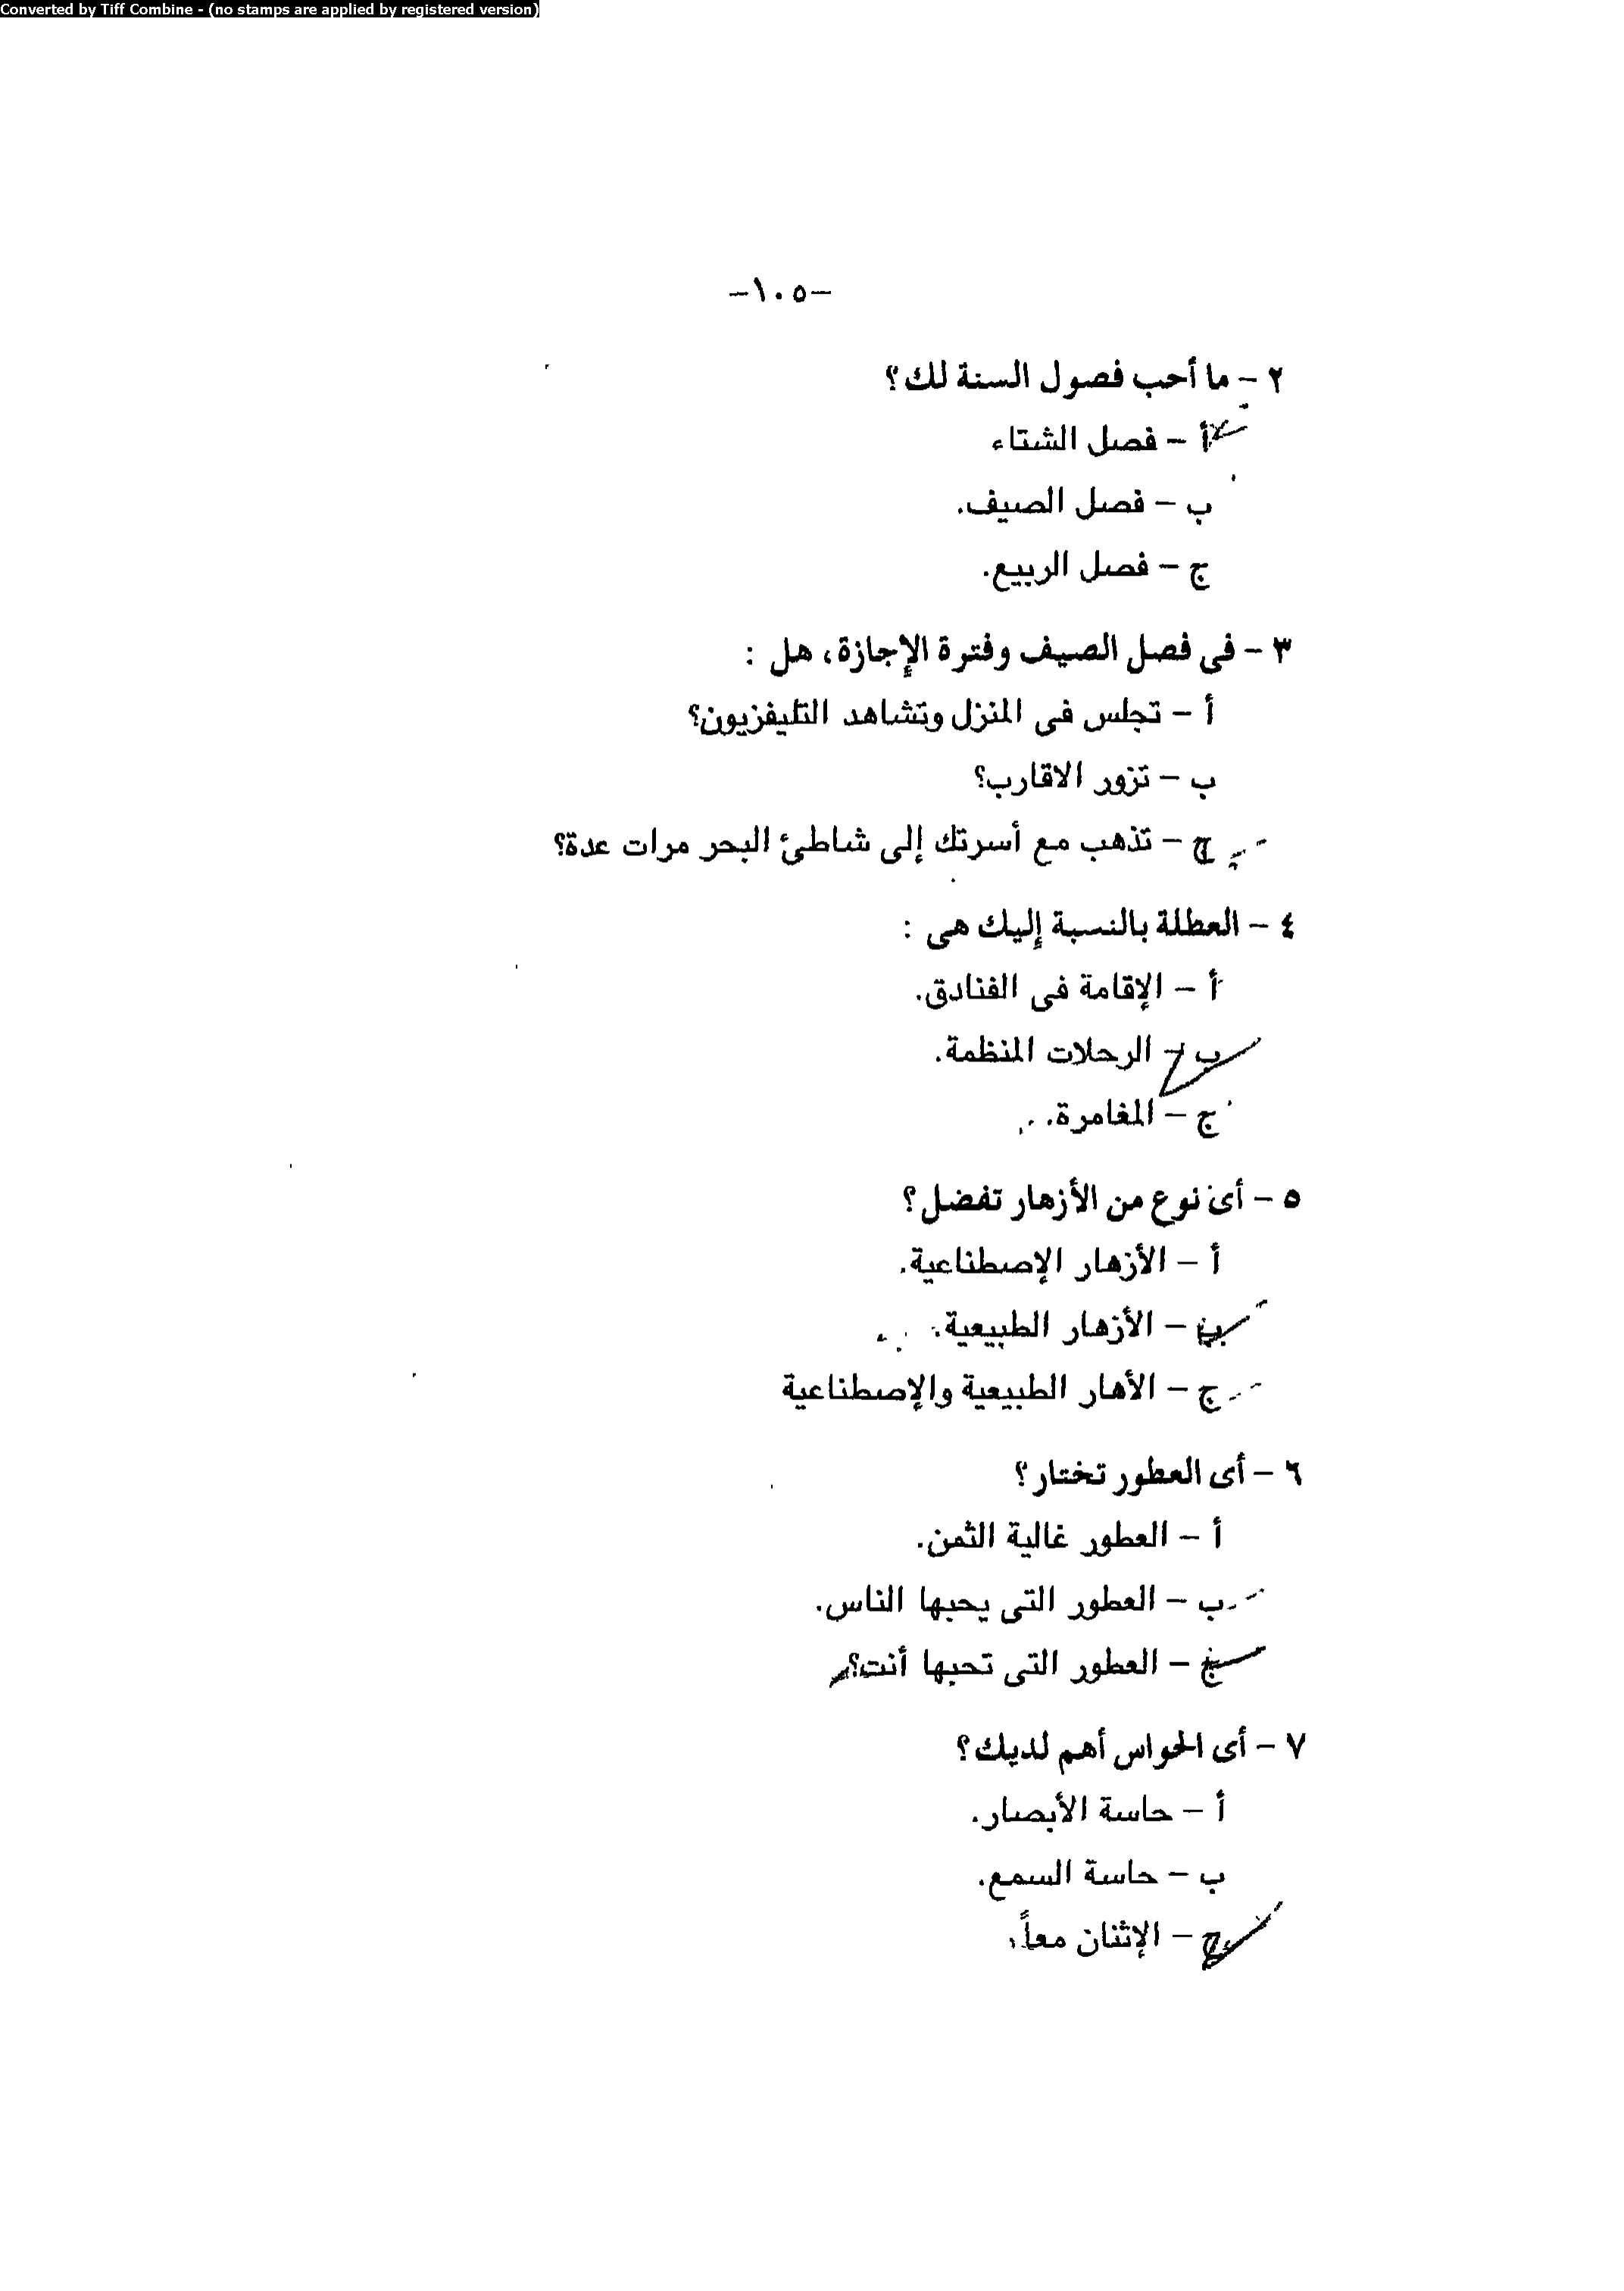 Converted by Tiff Combine - (no stamps are applied by registered version)
-١٠٥-
٢ - ما أحب فصول السنة لك؟
أ - فصل الشتاء
ب - فصل الصيف.
ج - فصل الربيع.
٣ - فى فصل الصيف وفترة الإجازة، هل :
أ - تجلس فى المنزل وتشاهد التليفزيون؟
ب - تزور الاقارب؟
ج - تذهب مع أسرتك إلى شاطئ البحر مرات عدة؟
٤ - العطلة بالنسبة إليك هى :
أ - الإقامة فى الفنادق.
ب - الرحلات المنظمة.
ج - المغامرة.
٥ - أى نوع من الأزهار تفضل؟
أ - الأزهار الإصطناعية.
ب - الأزهار الطبيعية.
ج - الأهار الطبيعية والإصطناعية
٦ - أى العطور تختار؟
أ - العطور غالية الثمن.
ب - العطور التى يحبها الناس.
ج - العطور التى تحبها أنت؟
٧ - أى الحواس أهم لديك؟
أ - حاسة الأبصار.
ب - حاسة السمع.
ج - الإثنان معاً.